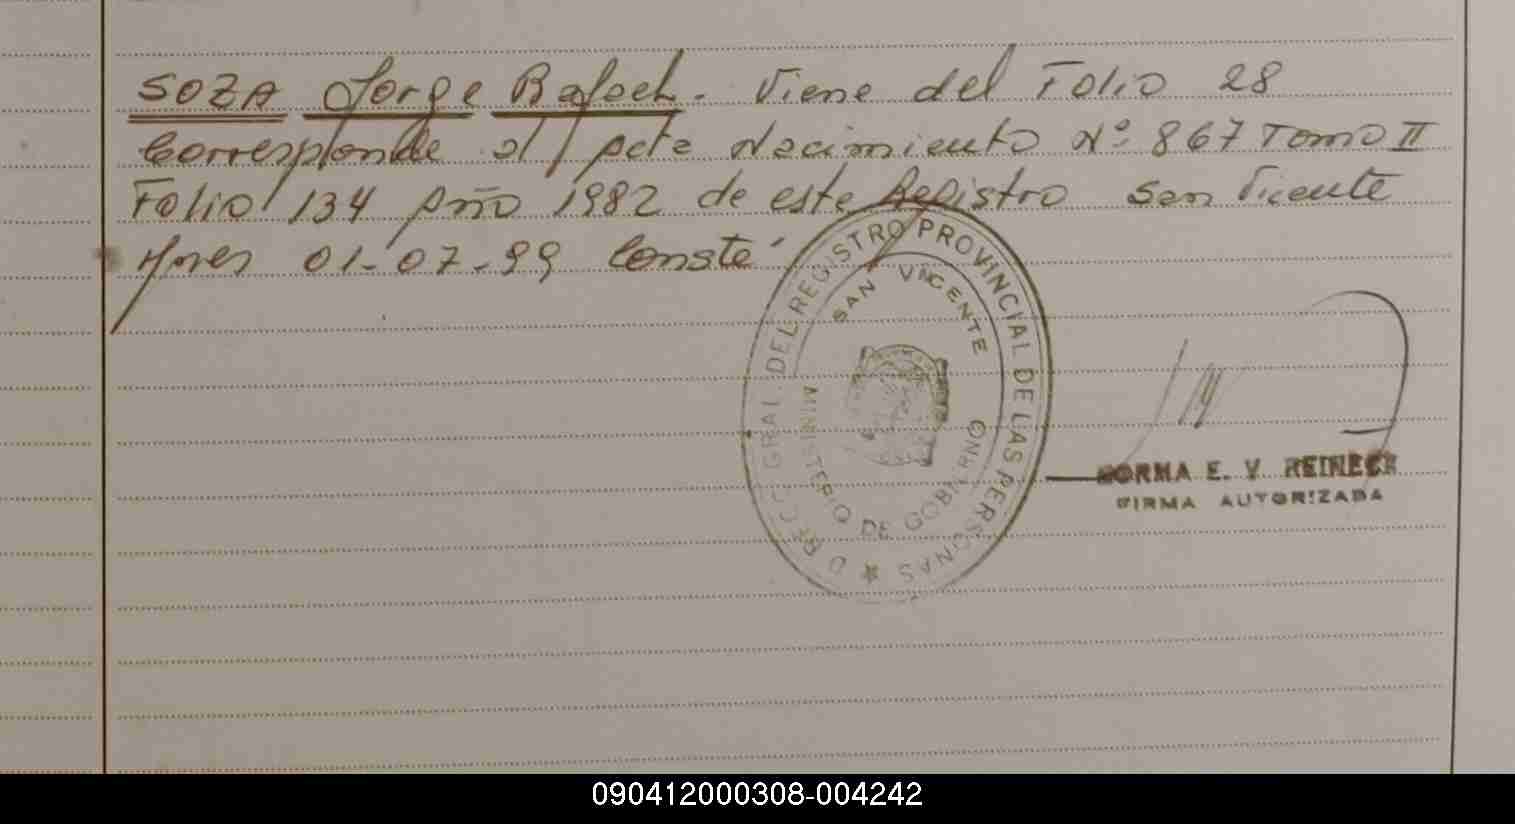 SOZA Jorge Rafael. Viene del Folio 28
Corresponde al Acta Nacimiento Nº 867 Tomo II
Folio 134 Año 1982 de este Registro San Vicente
Mnes 01-07-99 Conste
DIRECC. GRAL. DEL REGISTRO PROVINCIAL DE LAS PERSONAS
SAN VICENTE
MINISTERIO DE GOBIERNO
NORMA E. V. REINECK
FIRMA AUTORIZADA
090412000308-004242